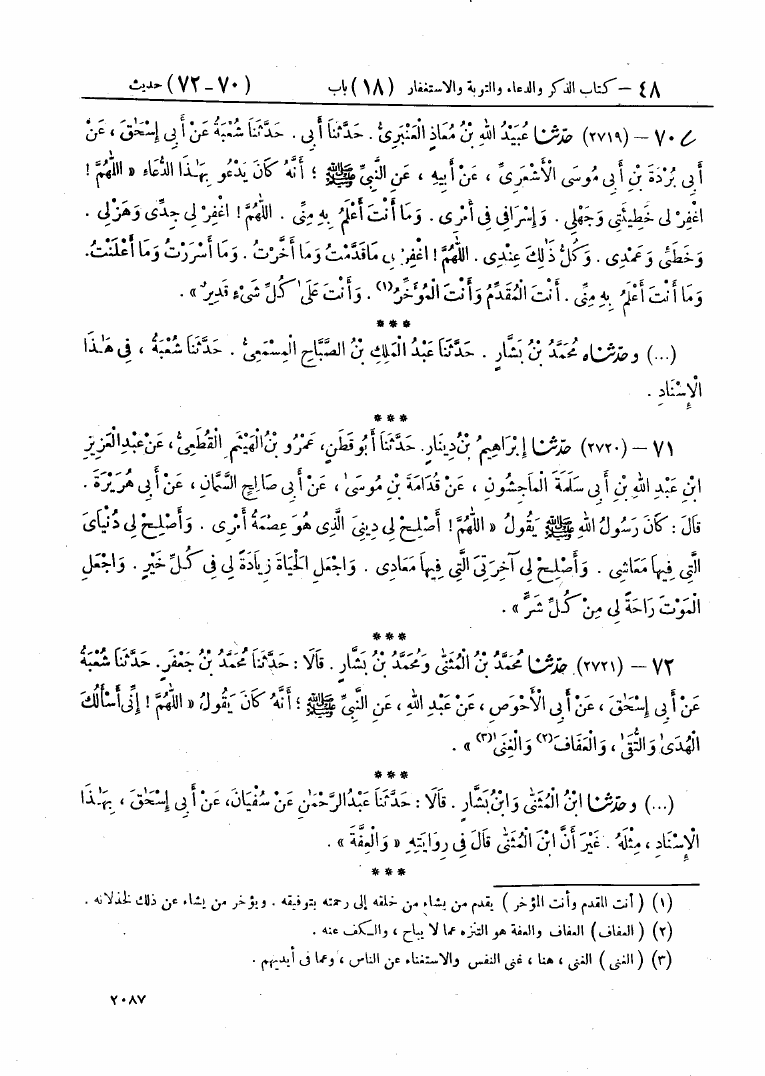 ٤٨ – كتاب الذكر والدعاء والتوبة والاستغفار (١٨) باب (٧٠-٧٢) حديث
٧٠ – (٢٧١٩) حدّثنا عُبَيْدُ اللهِ بْنُ مُعَاذٍ الْعَنْبَرِيُّ . حَدَّثَنَا أَبِي . حَدَّثَنَا شُعْبَةُ عَنْ أَبِي إِسْحَٰقَ ، عَنْ
أَبِي بُرْدَةَ بْنِ أَبِي مُوسَى الْأَشْعَرِيِّ ، عَنْ أَبِيهِ ، عَنِ النَّبِيِّ ﷺ ؛ أَنَّهُ كَانَ يَدْعُو بِهَٰذَا الدُّعَاءِ « اللَّهُمَّ !
اغْفِرْ لِي خَطِيئَتِي وَجَهْلِي . وَإِسْرَافِي فِي أَمْرِي . وَمَا أَنْتَ أَعْلَمُ بِهِ مِنِّي . اللَّهُمَّ ! اغْفِرْ لِي جِدِّي وَهَزْلِي .
وَخَطَئِي وَعَمْدِي . وَكُلُّ ذَٰلِكَ عِنْدِي . اللَّهُمَّ ! اغْفِرْ لِي مَا قَدَّمْتُ وَمَا أَخَّرْتُ . وَمَا أَسْرَرْتُ وَمَا أَعْلَنْتُ .
وَمَا أَنْتَ أَعْلَمُ بِهِ مِنِّي . أَنْتَ الْمُقَدِّمُ وَأَنْتَ الْمُؤَخِّرُ(١) . وَأَنْتَ عَلَىٰ كُلِّ شَيْءٍ قَدِيرٌ » .
***
(...) وحدّثناه مُحَمَّدُ بْنُ بَشَّارٍ . حَدَّثَنَا عَبْدُ الْمَلِكِ بْنُ الصَّبَّاحِ الْمِسْمَعِيُّ . حَدَّثَنَا شُعْبَةُ ، فِي هَٰذَا
الْإِسْنَادِ .
***
٧١ – (٢٧٢٠) حدّثنا إِبْرَاهِيمُ بْنُ دِينَارٍ . حَدَّثَنَا أَبُو قَطَنٍ ، عَمْرُو بْنُ الْهَيْثَمِ الْقُطَعِيُّ ، عَنْ عَبْدِ الْعَزِيزِ
ابْنِ عَبْدِ اللهِ بْنِ أَبِي سَلَمَةَ الْمَاجِشُونِ ، عَنْ قُدَامَةَ بْنِ مُوسَىٰ ، عَنْ أَبِي صَالِحٍ السَّمَّانِ ، عَنْ أَبِي هُرَيْرَةَ .
قَالَ : كَانَ رَسُولُ اللهِ ﷺ يَقُولُ « اللَّهُمَّ ! أَصْلِحْ لِي دِينِيَ الَّذِي هُوَ عِصْمَةُ أَمْرِي . وَأَصْلِحْ لِي دُنْيَايَ
الَّتِي فِيهَا مَعَاشِي . وَأَصْلِحْ لِي آخِرَتِي الَّتِي فِيهَا مَعَادِي . وَاجْعَلِ الْحَيَاةَ زِيَادَةً لِي فِي كُلِّ خَيْرٍ . وَاجْعَلِ
الْمَوْتَ رَاحَةً لِي مِنْ كُلِّ شَرٍّ » .
***
٧٢ – (٢٧٢١) حدّثنا مُحَمَّدُ بْنُ الْمُثَنَّى وَمُحَمَّدُ بْنُ بَشَّارٍ . قَالَا : حَدَّثَنَا مُحَمَّدُ بْنُ جَعْفَرٍ . حَدَّثَنَا شُعْبَةُ
عَنْ أَبِي إِسْحَٰقَ ، عَنْ أَبِي الْأَحْوَصِ ، عَنْ عَبْدِ اللهِ ، عَنِ النَّبِيِّ ﷺ ؛ أَنَّهُ كَانَ يَقُولُ « اللَّهُمَّ ! إِنِّي أَسْأَلُكَ
الْهُدَىٰ وَالتُّقَىٰ ، وَالْعَفَافَ(٢) وَالْغِنَىٰ(٣) » .
***
(...) وحدّثنا ابْنُ الْمُثَنَّى وَابْنُ بَشَّارٍ . قَالَا : حَدَّثَنَا عَبْدُ الرَّحْمَٰنِ عَنْ سُفْيَانَ ، عَنْ أَبِي إِسْحَٰقَ ، بِهَٰذَا
الْإِسْنَادِ ، مِثْلَهُ . غَيْرَ أَنَّ ابْنَ الْمُثَنَّى قَالَ فِي رِوَايَتِهِ « وَالْعِفَّةَ » .
***
(١) ( أنت المقدم وأنت المؤخر ) يقدم من يشاء من خلقه إلى رحمته بتوفيقه . ويؤخر من يشاء عن ذلك لخذلانه .
(٢) ( العفاف ) العفاف والعفة هو التنزه عما لا يباح ، والكف عنه .
(٣) ( الغنى ) الغنى ، هنا ، غنى النفس والاستغناء عن الناس ، وعما فى أيديهم .
٢٠٨٧